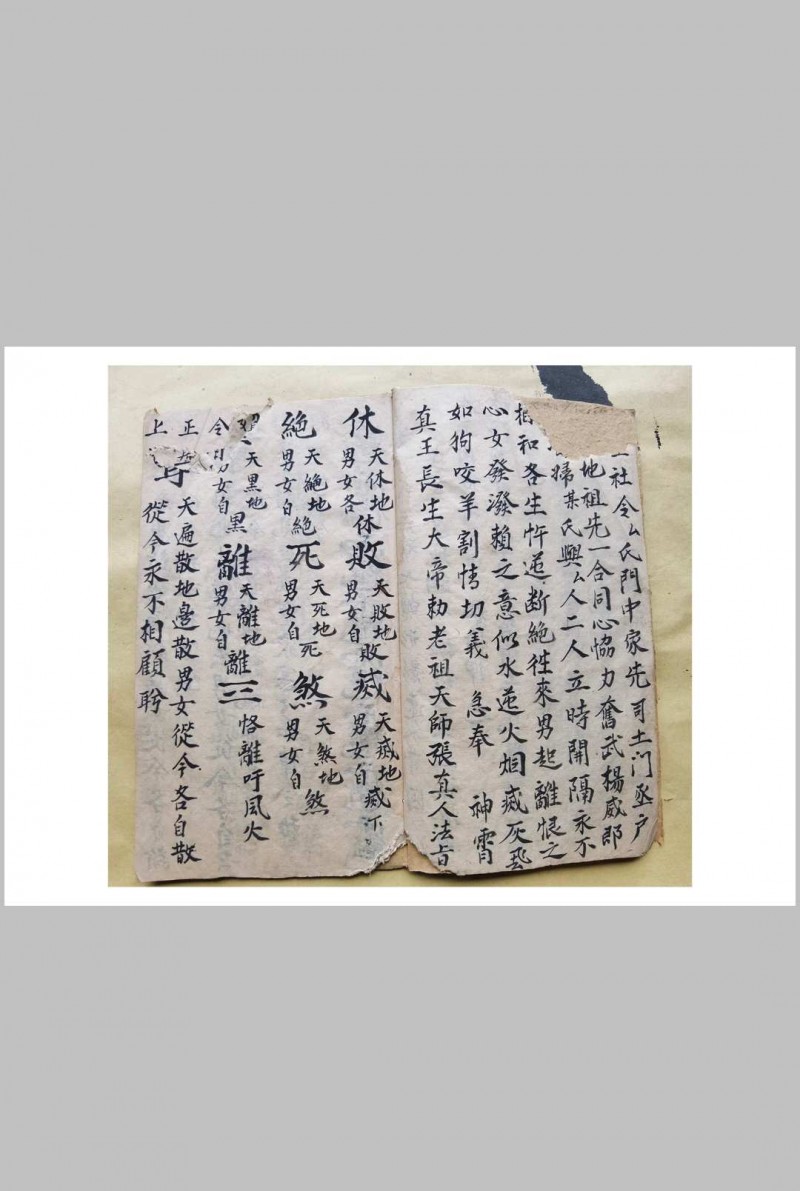 社令厶氏門中家先司土门丞户
地祖先一合同心協力奮武楊威郎
婦某氏興厶人二人立時開隔永不
和各生忤逆断絶徃來男起離恨之
心女發潑賴之意似水逆火烟烕灰飛
如狗咬羊割情切義 急奉 神霄
真王長生大帝勅老祖天師張真人法旨
休 天休地休 男女各 敗 天敗地敗 男女自 烕 天烕地烕 男女自
絶 天絶地絶 男女自 死 天死地死 男女自 煞 天煞地煞 男女自
天黑地黑 男女自 離 天離地離 男女自 三 恪離吁風火
令
正 天遍散地邉散男女從今各自散
上 從今永不相顧盻